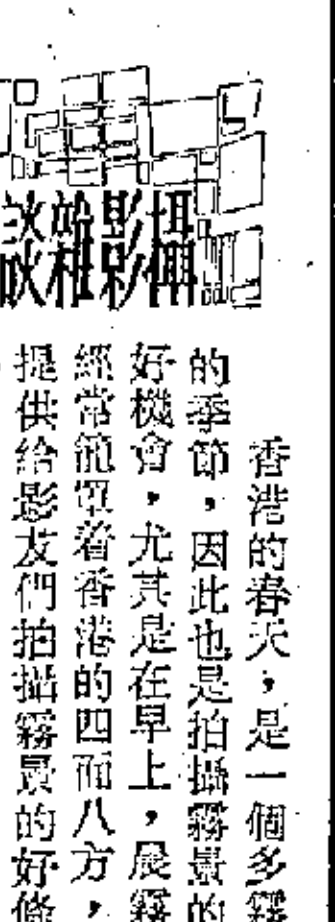 攝影雜談
香港的春天，是一個多霧
的季節，因此也是拍攝霧景的
好機會，尤其是在早上，晨霧
經常籠罩着香港的四面八方，
提供給影友們拍攝霧景的好條